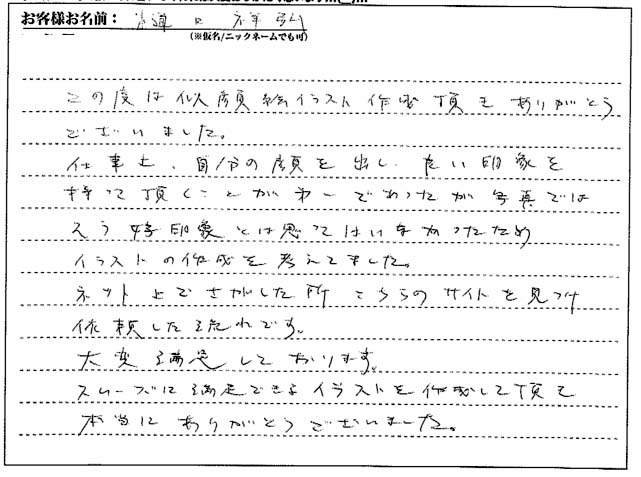 お客様お名前：
(※仮名/ニックネームでも可)
この度は似顔絵イラスト作成頂き ありがとう
ございました。
仕事上、自分の顔を出し、良い印象を
持って頂くことが 第一であったが 写真では
そう 好印象とは思ってはいなかったため
イラストの作成を考えてました。
ネット上でさがした所 こちらのサイトを見つけ
依頼した流れです。
大変満足しております。
スムーズに満足できるイラストを作成して頂き
本当に ありがとうございました。